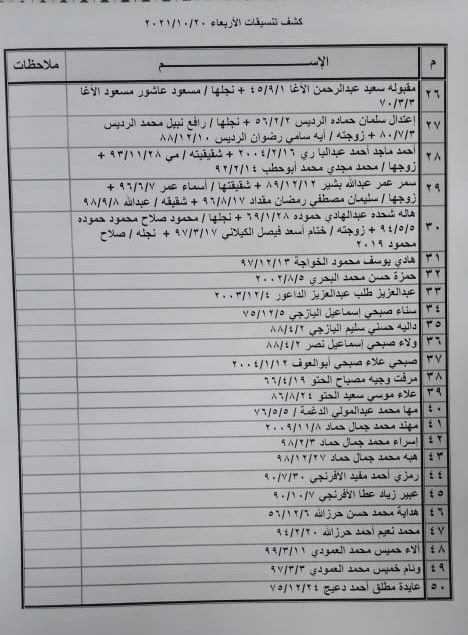 كشف تنسيقات الأربعاء ٢٠٢١/١٠/٢٠
م الإســـــــــم ملاحظات
٢٦ مقبوله سعيد عبدالرحمن الأغا ٤٥/٩/١ + نجلها / مسعود عاشور مسعود الأغا
٧٠/٣/٣
٢٧ إعتدال سلمان حماده الرديس ٥٦/٢/٢ + نجلها / رافع نبيل محمد الرديس
٨٠/٧/٣ + زوجته / أيه سامي رضوان الرديس ٨٨/١٢/١٠
٢٨ أحمد ماجد أحمد عبدالبا ري ٢٠٠٤/٢/١٦ + شقيقيته / مي ٩٣/١١/٢٨ +
زوجها / محمد مجدي محمد أبوحطب ٩٢/٢/١٤
٢٩ سمر عمر عبدالله بشير ٨٩/١٢/١٢ + شقيقتها / أسماء عمر ٩٦/٦/٧ +
زوجها / سليمان مصطفي رمضان مقداد ٩٦/٨/١٧ + شقيقه / عبدالله ٩٨/٩/٨
٣٠ هاله شحده عبدالهادي حموده ٦٩/١/٢٨ + نجلها / محمود صلاح محمود حموده
٩٤/٥/٥ + زوجته / ختام أسعد فيصل الكيلاني ٩٧/٣/١٧ + نجله / صلاح
محمود ٢٠١٩
٣١ هادي يوسف محمود الخواجة ٩٧/١٢/١٣
٣٢ حمزة حسن محمد البحري ٢٠٠٢/٨/٥
٣٣ عبدالعزيز طلب عبدالعزيز الداعور ٢٠٠٣/١٢/٤
٣٤ سناء صبحي إسماعيل اليازجي ٧٥/١٢/٥
٣٥ داليه حسني سليم اليازجي ٨٨/٤/٢
٣٦ ولاء صبحي إسماعيل نصر ٨٨/٤/٢
٣٧ صبحي علاء صبحي أبوالعوف ٢٠٠٤/١/١٢
٣٨ مرفت وجيه مصباح الحتو ٦٦/٤/١٩
٣٩ علاء موسي سعيد الحتو ٨٦/٨/٢٤
٤٠ مها محمد عبدالمولي الدغمة / ٧٦/٥/٥
٤١ مهند محمد جمال حماد ٢٠٠٩/١١/٨
٤٢ إسراء محمد جمال حماد ٩٨/٢/٣
٤٣ هبه محمد جمال حماد ٩٨/١٢/٢٧
٤٤ رمزي أحمد مفيد الأفرنجي ٩٠/٧/٣٠
٤٥ عبير زياد عطا الأفرنجي ٩٠/١٠/٧
٤٦ هداية محمد حسن حرزالله ٥٦/١٢/٦
٤٧ محمد نعيم أحمد حرزالله ٩٤/٢/٢٠
٤٨ الاء خميس محمد العمودي ٩٩/٣/١١
٤٩ ونام خميس محمد العمودي ٩٧/٣/٣
٥٠ عايدة مطلق أحمد دعيج ٧٥/١٢/٢٤